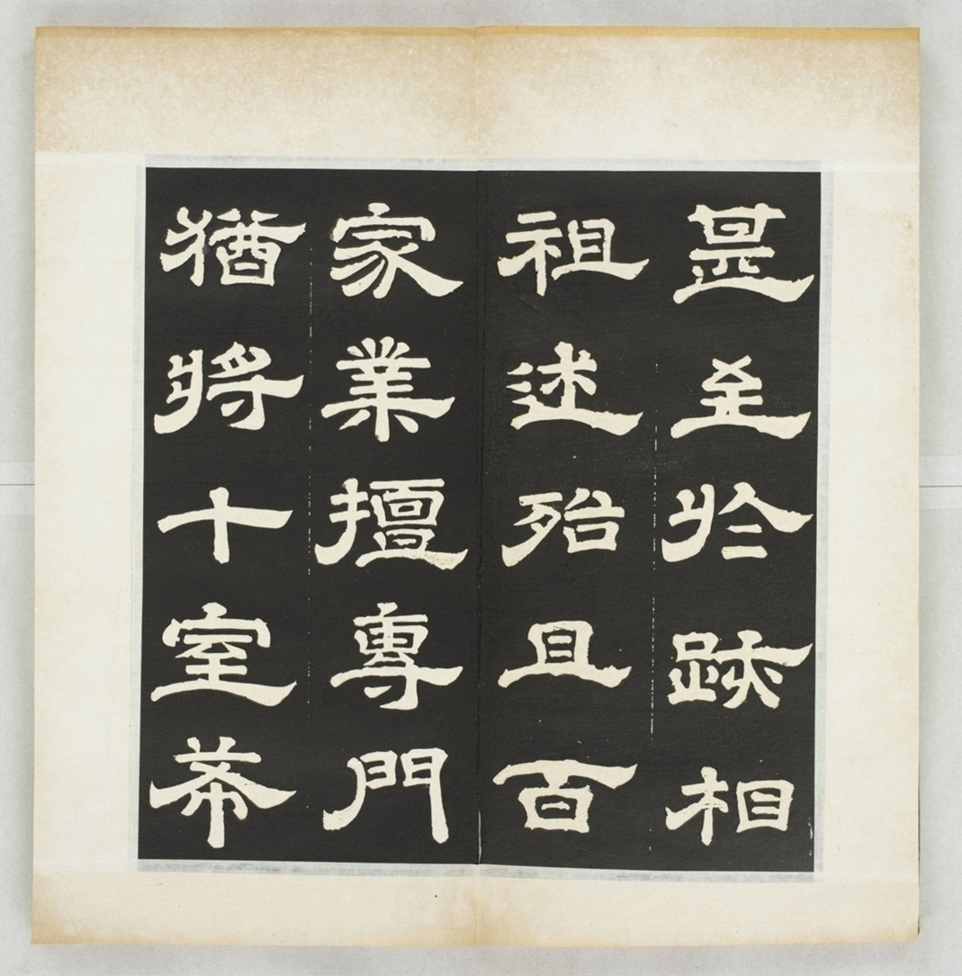 甚至於跡相
祖述殆且百
家業擅專門
猶將十室莃